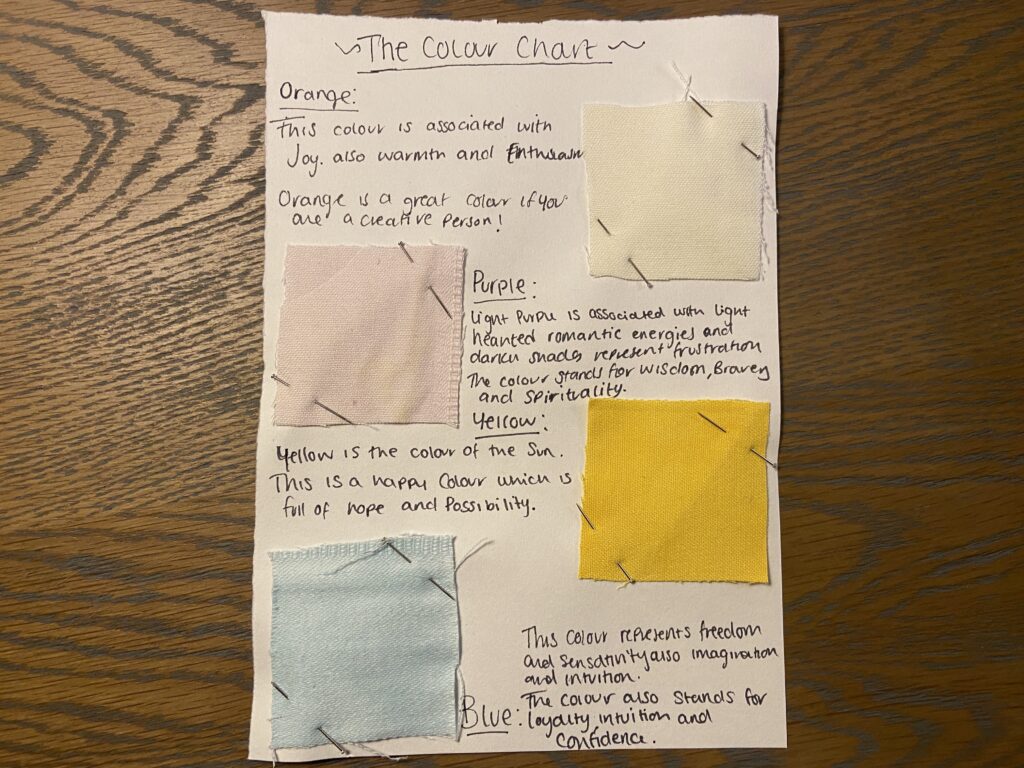 ~The Colour Chart~
Orange:
This colour is associated with
Joy. also warmth and Enthusiasm
Orange is a great colour if you
are a creative person!
Purple:
Light Purple is associated with light
hearted romantic energies and
darker shades represent frustration
The colour stands for wisdom, Bravery
and spirituality.
Yellow:
Yellow is the colour of the Sun.
This is a happy Colour which is
full of hope and Possibility.
This Colour represents freedom
and sensativity also imagination
and intuition.
Blue: The colour also stands for
loyalty intuition and
confidence.